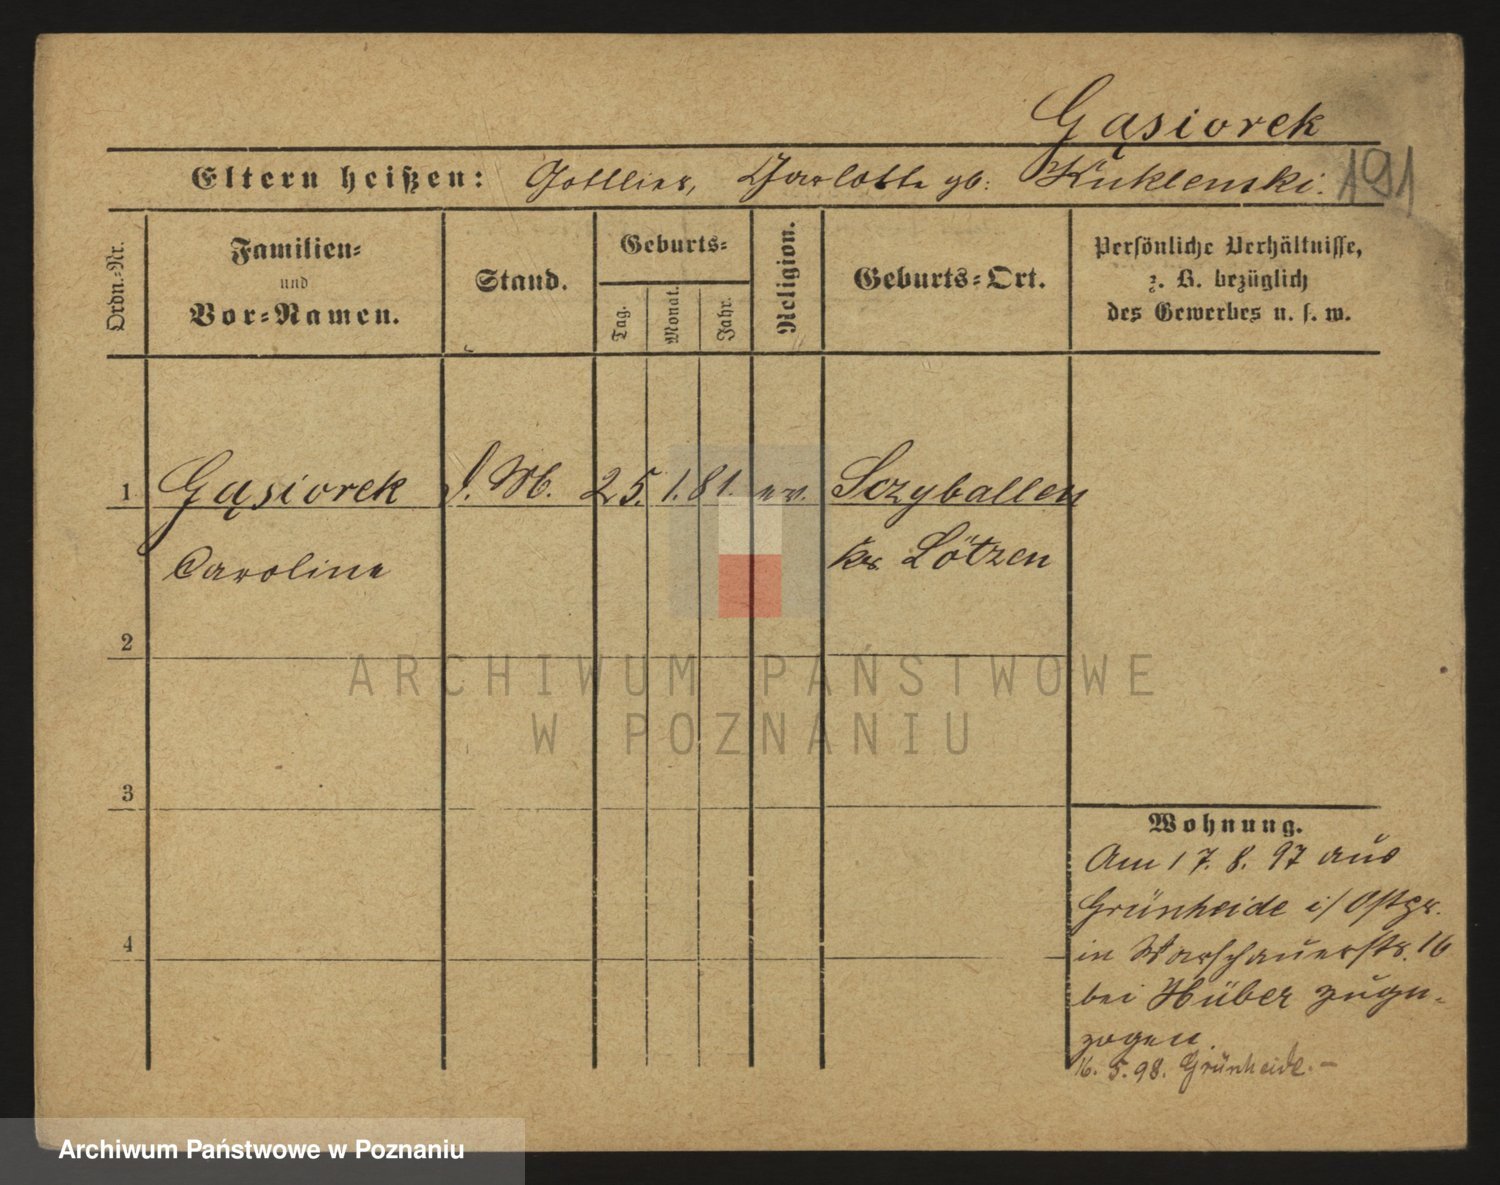 Gąsiorek
Eltern heißen: Gottlieb, Charlotte gb: Kuklenski. 191
Ordn.-Nr.
Familien-
und
Vor-Namen.
Stand.
Geburts-
Tag.
Monat.
Jahr.
Religion.
Geburts-Ort.
Persönliche Verhältnisse,
z. B. bezüglich
des Gewerbes u. s. w.
1 Gąsiorek D. M. 25. 1. 81. ev. Sczyballen
Caroline Krs. Lötzen
2
3
4
Wohnung.
Am 17. 8. 97 aus
Grünheide i/ Ostpr.
in Warschauerstr. 16
bei Hüber zuge-
zogen.
16. 5. 98. Grünheide. –
ARCHIWUM PAŃSTWOWE
W POZNANIU
Archiwum Państwowe w Poznaniu